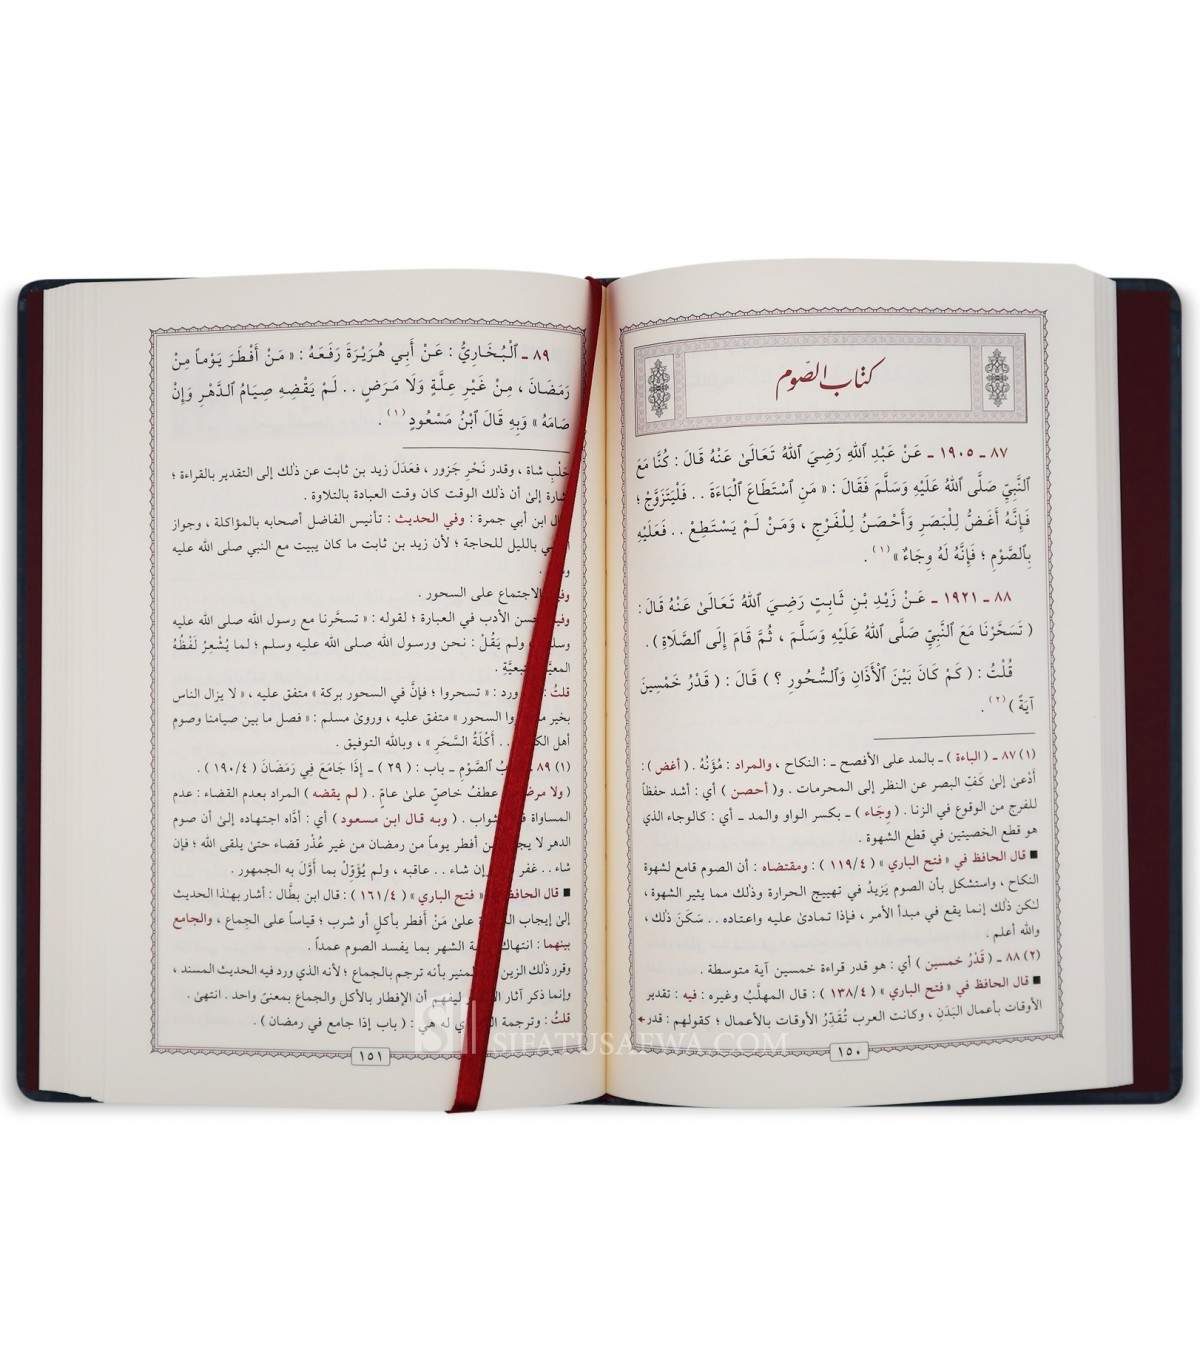 كتاب الصّوم
٨٧ ـ ١٩٠٥ ـ عَنْ عَبْدِ ٱللهِ رَضِيَ ٱللهُ تَعَالَىٰ عَنْهُ قَالَ : كُنَّا مَعَ
ٱلنَّبِيِّ صَلَّى ٱللهُ عَلَيْهِ وَسَلَّمَ فَقَالَ : « مَنِ ٱسْتَطَاعَ ٱلْبَاءَةَ . . فَلْيَتَزَوَّجْ ؛
فَإِنَّهُ أَغَضُّ لِلْبَصَرِ وَأَحْصَنُ لِلْفَرْجِ ، وَمَنْ لَمْ يَسْتَطِعْ . . فَعَلَيْهِ
بِٱلصَّوْمِ ؛ فَإِنَّهُ لَهُ وِجَاءٌ »(١) .
٨٨ ـ ١٩٢١ ـ عَنْ زَيْدِ بْنِ ثَابِتٍ رَضِيَ ٱللهُ تَعَالَىٰ عَنْهُ قَالَ :
( تَسَحَّرْنَا مَعَ ٱلنَّبِيِّ صَلَّى ٱللهُ عَلَيْهِ وَسَلَّمَ ، ثُمَّ قَامَ إِلَى ٱلصَّلَاةِ ) .
قُلْتُ : ( كَمْ كَانَ بَيْنَ ٱلْأَذَانِ وَٱلسُّحُورِ ؟ ) قَالَ : ( قَدْرُ خَمْسِينَ
آيَةً )(٢) .
(١) ٨٧ ـ ( الباءة ) ـ بالمد على الأفصح ـ : النكاح ، والمراد : مُؤَنُهُ . ( أغض ) :
أَدْعىٰ إلىٰ كَفِّ البصر عن النظر إلى المحرمات . و( أحصن ) أي : أشد حفظاً
للفرج من الوقوع في الزنا . ( وِجَاء ) ـ بكسر الواو والمد ـ أي : كالوجاء الذي
هو قطع الخصيتين في قطع الشهوة .
■ قال الحافظ في « فتح الباري » ( ١١٩/٤ ) : ومقتضاه : أن الصوم قامع لشهوة
النكاح ، واستشكل بأن الصوم يَزيدُ في تهييج الحرارة وذلك مما يثير الشهوة ،
لكن ذلك إنما يقع في مبدأ الأمر ، فإذا تمادىٰ عليه واعتاده . . سَكَنَ ذلك ،
والله أعلم .
(٢) ٨٨ ـ ( قَدْرُ خمسين ) أي : هو قدر قراءة خمسين آية متوسطة .
■ قال الحافظ في « فتح الباري » ( ١٣٨/٤ ) : قال المهلَّبُ وغيره : فيه : تقدير
الأوقات بأعمال البَدَنِ ، وكانت العرب تُقَدِّرُ الأوقات بالأعمال ؛ كقولهم : قدر
١٥٠
٨٩ ـ ٱلْبُخَارِيُّ : عَنْ أَبِي هُرَيْرَةَ رَفَعَهُ : « مَنْ أَفْطَرَ يَوْماً مِنْ
رَمَضَانَ ، مِنْ غَيْرِ عِلَّةٍ وَلَا مَرَضٍ . . لَمْ يَقْضِهِ صِيَامُ ٱلدَّهْرِ وَإِنْ
صَامَهُ » وَبِهِ قَالَ ٱبْنُ مَسْعُودٍ(١) .
حَلْبِ شاة ، وقدر نَحْرِ جَزور ، فعَدَلَ زيد بن ثابت عن ذلك إلى التقدير بالقراءة ؛
إلىٰ أن ذلك الوقت كان وقت العبادة بالتلاوة .
ابن أبي جمرة : وفي الحديث : تأنيس الفاضل أصحابه بالمؤاكلة ، وجواز
بالليل للحاجة ؛ لأن زيد بن ثابت ما كان يبيت مع النبي صلى الله عليه
.
الاجتماع على السحور .
الأدب في العبارة ؛ لقوله : « تسحَّرنا مع رسول الله صلى الله عليه
ولم يَقُلْ : نحن ورسول الله صلى الله عليه وسلم ؛ لما يُشْعِرُ لَفْظُهُ
.
قلتُ : ورد : « تسحروا ؛ فإنَّ في السحور بركة » متفق عليه ، « لا يزال الناس
بخير السحور » متفق عليه ، وروىٰ مسلم : « فصل ما بين صيامنا وصوم
أهل . . أَكْلَةُ السَّحَرِ » ، وبالله التوفيق .
(١) ٨٩ ـ ٱلصَّوْمِ ـ باب : ( ٢٩ ) ـ إِذَا جَامَعَ فِي رَمَضَانَ ( ١٩٠/٤ ) .
( ولا عطفُ خاصٍّ علىٰ عامٍّ . ( لم يقضه ) المراد بعدم القضاء : عدم
المساواة . ( وبه قال ابن مسعود ) أي : أدَّاه اجتهاده إلىٰ أن صوم
الدهر لا أفطر يوماً من رمضان من غير عُذْر قضاء حتىٰ يلقى الله ؛ فإن
شاء . . غفر إن شاء . . عاقبه ، ولم يُؤَوِّلْ بما أوَّلَ به الجمهور .
■ قال الحافظ « فتح الباري » ( ١٦١/٤ ) : قال ابن بطَّال : أشار بهٰذا الحديث
إلىٰ إيجاب علىٰ مَنْ أَفطر بأكلٍ أو شرب ؛ قياساً على الجِماع ، والجامع
بينهما : انتهاك الشهر بما يفسد الصوم عمداً .
وقرر ذلك الزين المنير بأنه ترجم بالجماع ؛ لأنه الذي ورد فيه الحديث المسند ،
وإنما ذكر آثار ليفهم أن الإفطار بالأكل والجماع بمعنىً واحد . انتهىٰ .
قلتُ : وترجمة له هي : ( باب إذا جامع في رمضان ) .
١٥١
SIFATUSAFWA.COM